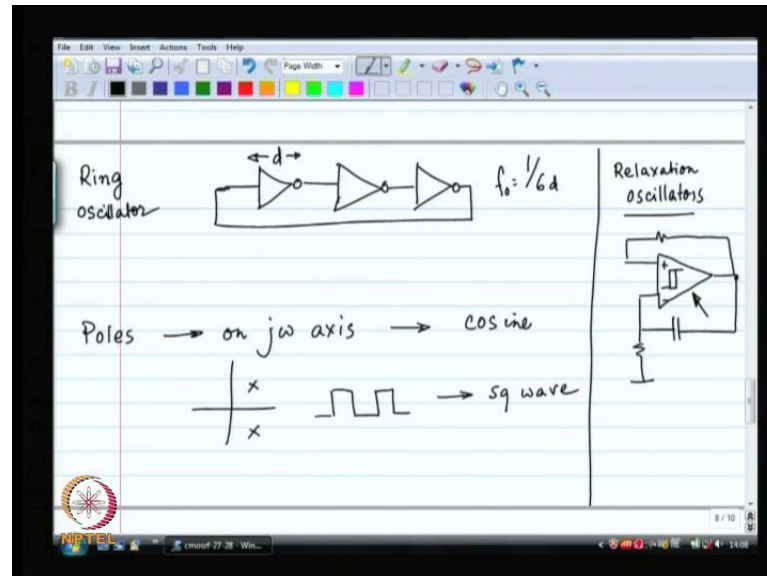 File Edit View Insert Actions Tools Help
Page Width
B I
Ring oscillator
d
f₀ = 1/6d
Relaxation oscillators
+
-
Poles → on jω axis → cosine
x
x
→ sq wave
8 / 10
NPTEL
cmosrf-27-28 - Win...
14:08